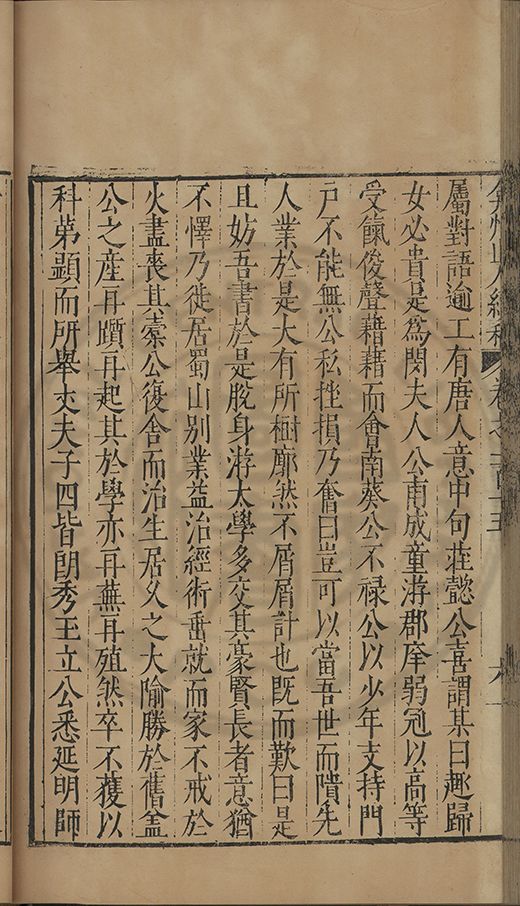 弇州山人續稿 卷之一百十五 六
屬對語逾工有唐人意中句莊懿公喜謂某曰趣歸
女必貴是爲閔夫人公甫成童游郡庠弱冠以高等
受餼俊聲藉藉而會南葵公不祿公以少年支持門
戸不能無公私挫損乃奮曰豈可以當吾世而隤先
人業於是大有所樹廓然不屑屑計也既而歎曰是
且妨吾書於是脫身游太學多交其豪賢長者意猶
不懌乃徙居蜀山別業益治經術垂就而家不戒於
火盡喪其橐公復舍而治生居久之大隃勝於舊蓋
公之産再隤再起其於學亦再蕪再殖然卒不獲以
科第顯而所舉丈夫子四皆朗秀玉立公悉延明師